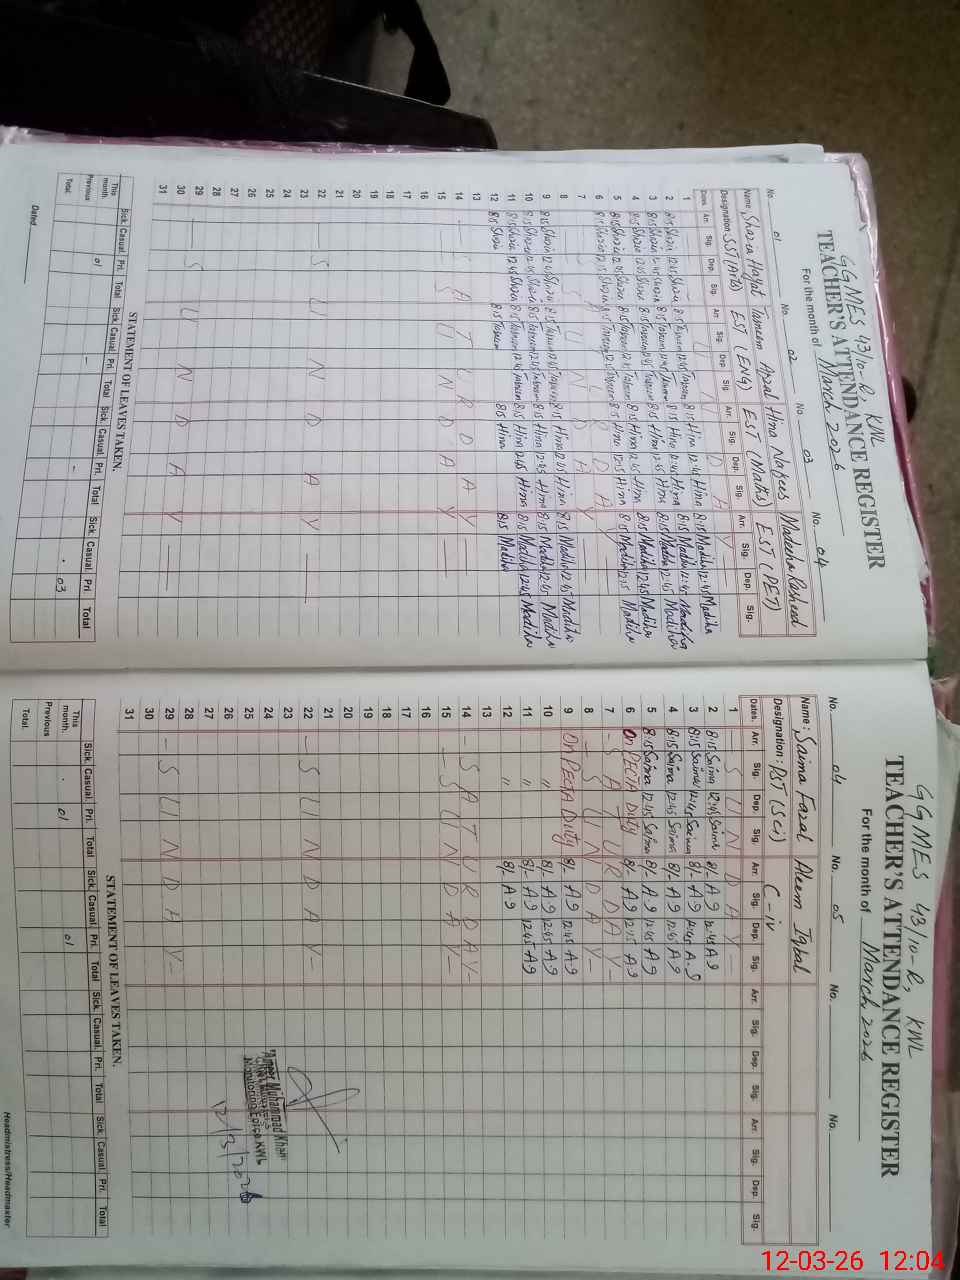 GGMES 43/10-R, KWL
TEACHER'S ATTENDANCE REGISTER
For the month of March 2026
No. 01 No. 02 No. 03 No. 04
Name Shazia Hayat Tasneem Afzal Hina Nafees Madeeha Rasheed
Designation SST(Arts) EST (ENG) EST (Maths) EST (PET)
Dates Arr. Sig. Dep. Sig. Arr. Sig. Dep. Sig. Arr. Sig. Dep. Sig. Arr. Sig. Dep. Sig.
1 SUNDAY
2 8:15 Shazia 12:45 Shazia 8:15 Tasneem 12:45 Tasneem 8:15 Hina 12:45 Hina 8:15 Madiha 12:45 Madiha
3 8:15 Shazia 12:45 Shazia 8:15 Tasneem 12:45 Tasneem 8:15 Hina 12:45 Hina 8:15 Madiha 12:45 Madiha
4 8:15 Shazia 12:45 Shazia 8:15 Tasneem 12:45 Tasneem 8:15 Hina 12:45 Hina 8:15 Madiha 12:45 Madiha
5 8:15 Shazia 12:45 Shazia 8:15 Tasneem 12:45 Tasneem 8:15 Hina 12:45 Hina 8:15 Madiha 12:45 Madiha
6 8:15 Shazia 12:15 Shazia 8:15 Tasneem 12:15 Tasneem 8:15 Hina 12:15 Hina 8:15 Madiha 12:15 Madiha
7
8 SUNDAY
9 8:15 Shazia 12:45 Shazia 8:15 Tasneem 12:45 Tasneem 8:15 Hina 12:45 Hina 8:15 Madiha 12:45 Madiha
10 8:15 Shazia 12:45 Shazia 8:15 Tasneem 12:45 Tasneem 8:15 Hina 12:45 Hina 8:15 Madiha 12:45 Madiha
11 8:15 Shazia 12:45 Shazia 8:15 Tasneem 12:45 Tasneem 8:15 Hina 12:45 Hina 8:15 Madiha 12:45 Madiha
12 8:15 Shazia 8:15 Tasneem 8:15 Hina 8:15 Madiha
13
14 SATURDAY
15 SUNDAY
16
17
18
19
20
21
22 SUNDAY
23
24
25
26
27
28
29 SUNDAY
30
31
STATEMENT OF LEAVES TAKEN.
Sick. Casual. Pri. Total Sick. Casual. Pri. Total Sick. Casual. Pri. Total Sick. Casual. Pri Total
This month.
Previous 01 - - . 03
Total.
Dated
GGMES 43/10-R, KWL
TEACHER'S ATTENDANCE REGISTER
For the month of March, 2026
No. 04 No. 05 No. No.
Name: Saima Fazal Aleem Iqbal
Designation: PST (Sci) C-iv
Dates. Arr. Sig. Dep. Sig. Arr. Sig. Dep. Sig. Arr. Sig. Dep. Sig. Arr. Sig. Dep. Sig.
1 - SUNDAY -
2 8:15 Saima 12:45 Saima 8/- A.9 12:45 A.9
3 8:15 Saima 12:45 Saima 8/- A.9 12:45 A.9
4 8:15 Saima 12:45 Saima 8/- A9 12:45 A.9
5 8:15 Saima 12:45 Saima 8/- A.9 12:45 A9
6 On PECTA Duty 8/- A.9 12:15 A.9
7 - SATURDAY -
8 - SUNDAY -
9 On PECTA Duty 8/- A9 12:45 A9
10 " 8/- A9 12:45 A9
11 " 8/- A9 12:45 A9
12 " 8/- A9
13
14 - SATURDAY -
15 - SUNDAY -
16
17
18
19
20
21
22 - SUNDAY -
23
24
25
26
27
28
29 - SUNDAY -
30
31
STATEMENT OF LEAVES TAKEN.
Sick. Casual. Pri. Total Sick. Casual. Pri. Total Sick. Casual. Pri. Total Sick. Casual. Pri. Total
This month. . 01 01
Previous
Total.
Ameer Muhammad Khan
Monitoring Force KWL
12/3/2026
Headmistress/Headmaster
12-03-26 12:04